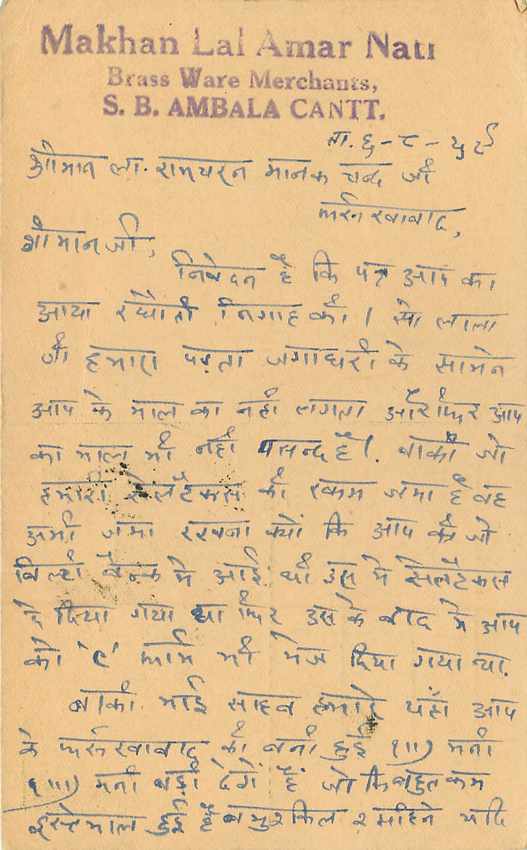 Makhan Lal Amar Nath
Brass Ware Merchants,
S. B. AMBALA CANTT.
ता. ६-८-५८
श्रीमान ला. रामचरन मानक चन्द जी
फर्रुखाबाद,
श्रीमान जी,
निवेदन है कि पत्र आप का
आया निगाह की। सो लाला
जी हमारा पड़ता जगाधरी के सामने
आप के माल का नहीं लगता और फिर आप
का माल भी नहीं पसन्द है। बाकी जो
हमारी सेलटैकस की रकम जमा है वह
अभी जमा रखना क्यों कि आप की जो
बिल्टी बैन्क में आई थी उस में सेलटैकस
दे दिया गया था फिर उस के बाद में आप
को 'C' फार्म भी भेज दिया गया था.
बाकी भाई साहब हमारे यहाँ आप
के फर्रुखाबाद की बनी हुई १॥) मनी
१॥।) मनी बड़ी देगें हैं जो कि बहुत कम
इस्तेमाल हुई है बमुश्किल २ महिने यदि